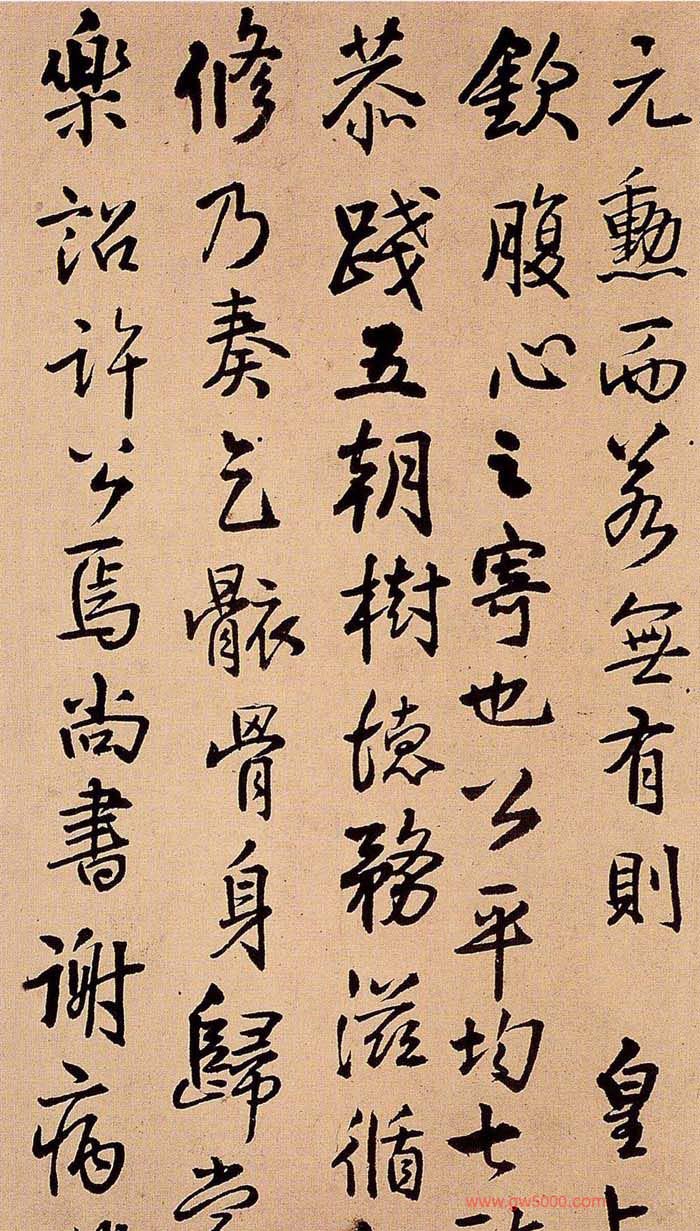 元勳而若無有則 皇
欽腹心之寄也公平均七
恭踐五朝樹德務滋循
修乃奏乞骸骨身歸常
樂詔許公焉尚書謝病
www.gw5000.com